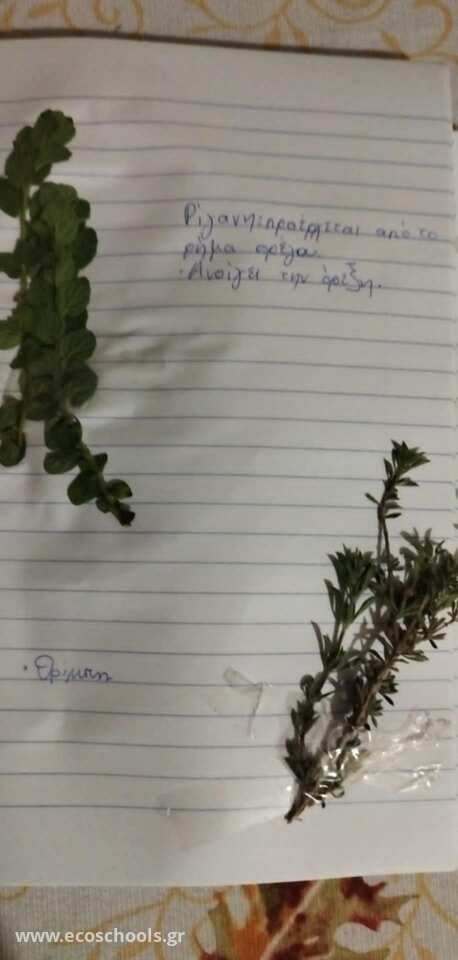 Ρίγανη: προέρχεται από το
ρήμα ορέγω.
· Ανοίγει την όρεξη.
· Θρίμπη
www.ecoschools.gr